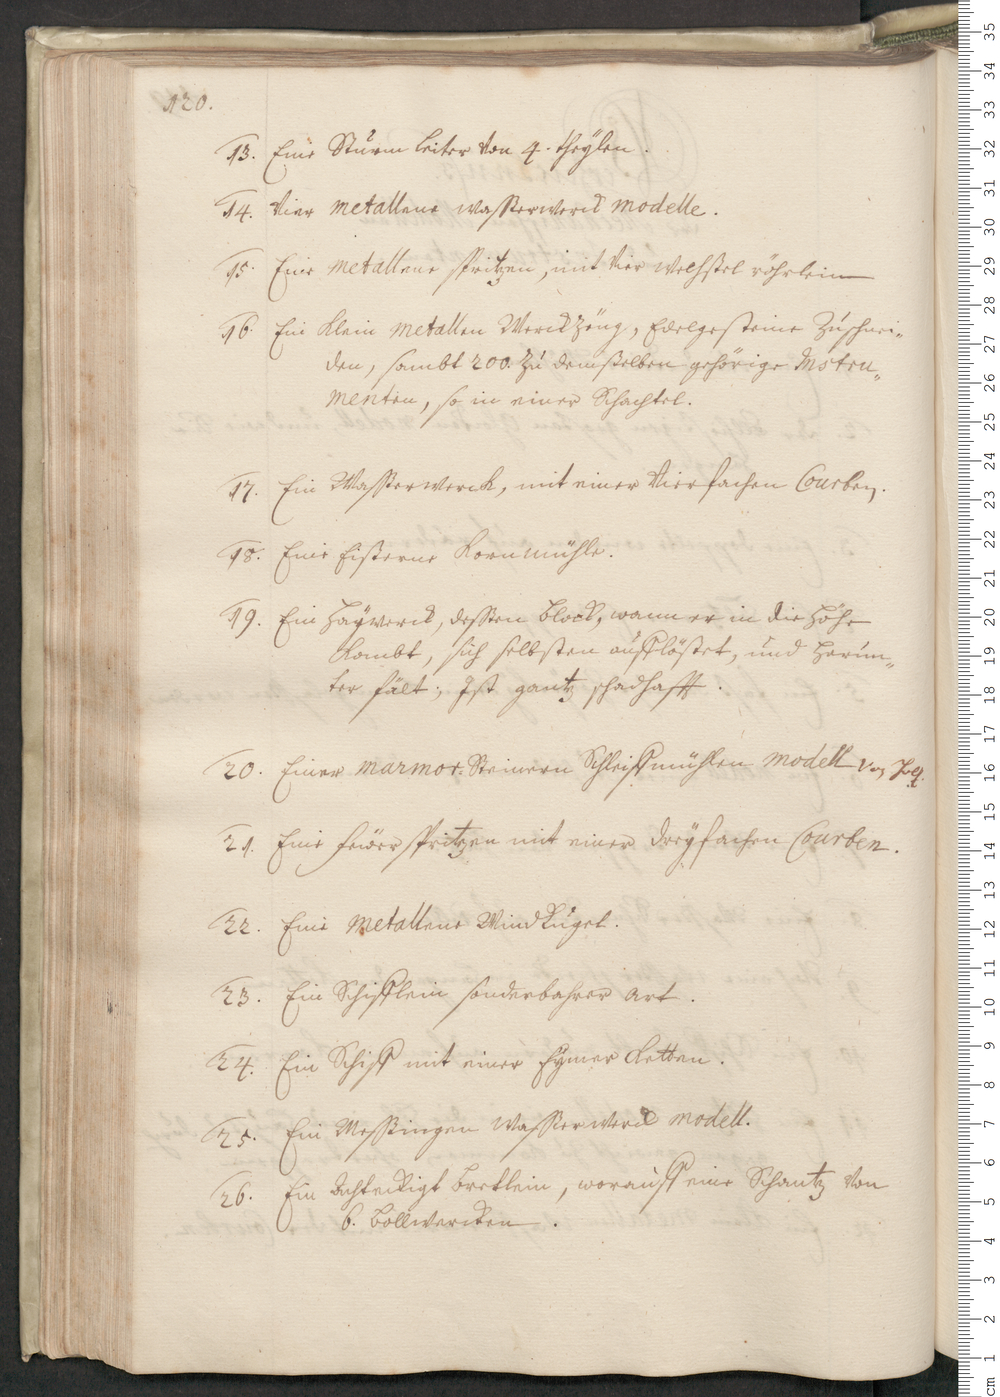 120.
13. Eine Sturm leiter von 4. theylen.
14. Vier metallene wasserwerck modelle.
15. Eine metallene spritzen, mit vier wechssel röhrlein
16. Ein klein metallen Werckzeüg, Edelgesteine Zuschnei-
den, sambt 200. Zu demselben gehörige Instru-
menten, so in einer Schachtel.
17. Ein Wasserwerck, mit einer vierfachen Courben.
18. Eine Eißerne Kornmühle.
19. Ein Haÿwerck, dessen block, wann er in die Höhe
kombt, sich selbsten aufflößet, und herun-
ter fält; Ist gantz schadhafft.
20. Einer marmor-Steinern Schleiffmühlen modell
21. Eine feüerspritzen mit einer dreÿfachen Courben.
22. Eine metallene Windkugel.
23. Ein Schifflein sonderbahrer art.
24. Ein Schiff mit einer Eÿmer Ketten.
25. Ein Messingen Wasserwerck modell.
26. Ein Achteckigt brettlein, worauff eine Schantz von
6. bollwercken.
cm 1 2 3 4 5 6 7 8 9 10 11 12 13 14 15 16 17 18 19 20 21 22 23 24 25 26 27 28 29 30 31 32 33 34 35